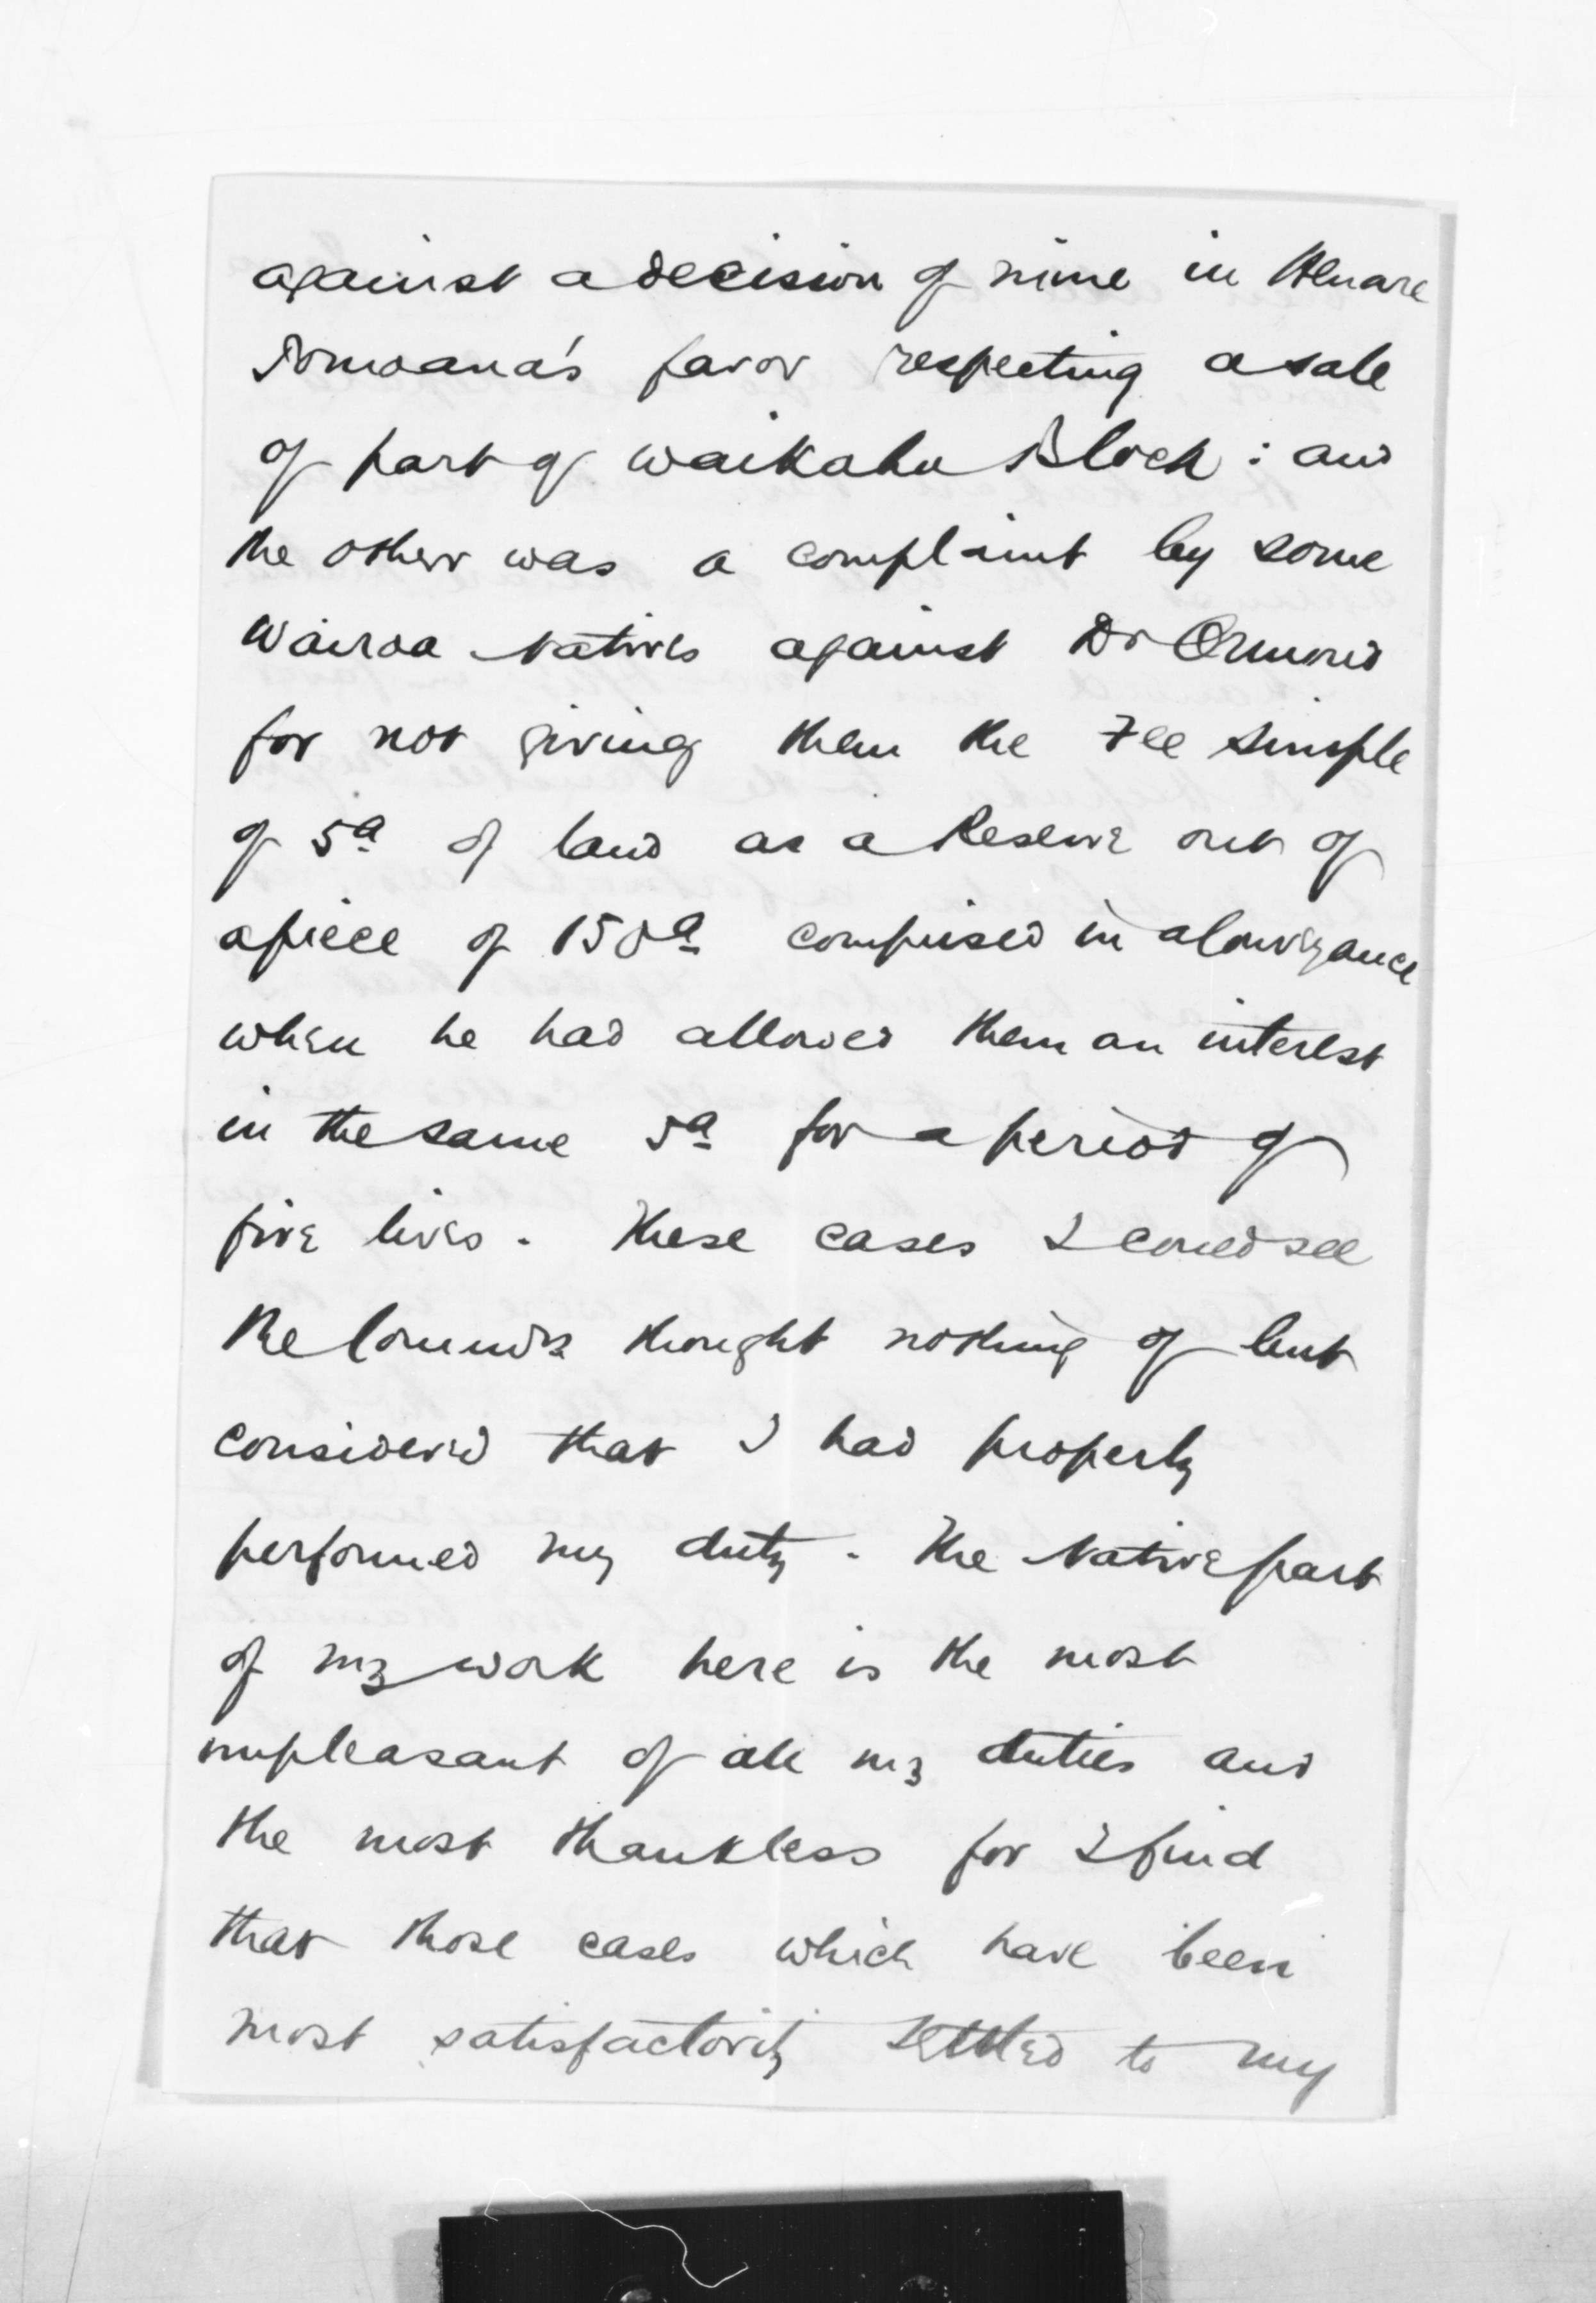 against a decision of mine in Henare
Tomoana's favor respecting a sale
of part of Waikahu Block : and
the other was a complaint by some
Wairoa Natives against Dr Ormond
for not giving them the Fee simple
of 5a of land as a Reserve out of
a piece of 150a comprised in a Conveyance
when he had allowed them an interest
in the same 5a for a period of
five lives . These cases I could see
the Commrs thought nothing of but
considered that I had properly
performed my duty . The Native part
of my work here is the most
unpleasant of all my duties and
the most thankless for I find
that those cases which have been
most satisfactorily settled to my